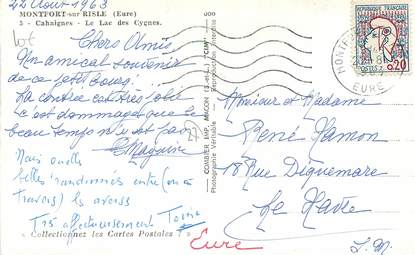 22 Août 1963
MONTFORT-sur RISLE (Eure)
5 - Cahaignes - Le Lac des Cygnes.
lot
Chers Amis
Un amical souvenir
de ce petit bourg.
La contrée est très jolie
c'est dommage que le
beau temps n'y est pas
Mais quelles
belles randonnées entre (ou à
travers) les averses
Très affectueusement
« Collectionnez les Cartes Postales ! »
COMBIER IMP. MACON (S.-&-L.) "CIM"
Photographie Véritable - Reproduction interdite
27
REPUBLIQUE FRANÇAISE
POSTES
0,20
EURE
Monsieur et Madame
René Hamon
18 Rue Dicquemare
Le Havre
Eure
S. M.